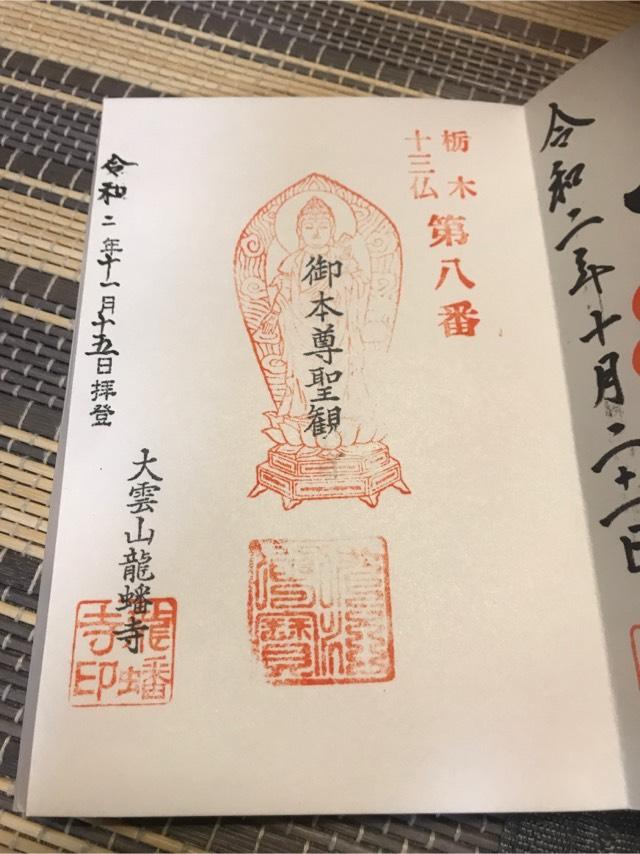 令和二年十月二十一日
栃木
十三仏
第八番
御本尊聖観
令和二年十一月十五日拝登
大雲山龍蟠寺
龍蟠
寺印